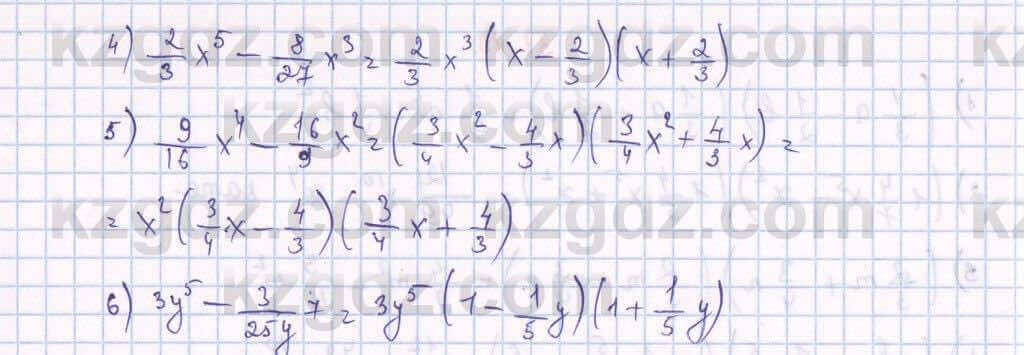 4) 2/3 x⁵ − 8/27 x³ = 2/3 x³ (x − 2/3)(x + 2/3)
5) 9/16 x⁴ − 16/9 x² = (3/4 x² − 4/3 x)(3/4 x² + 4/3 x) =
= x² (3/4 x − 4/3)(3/4 x + 4/3)
6) 3y⁵ − 3/25y 7 = 3y⁵ (1 − 1/5 y)(1 + 1/5 y)
kzgdz.com